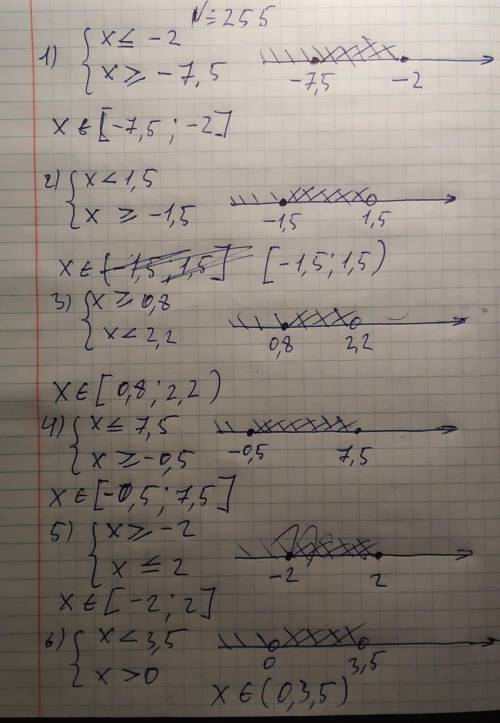 №255
1) { x ≤ -2
x ≥ -7,5
-7,5 -2
x ∈ [-7,5 ; -2]
2) { x < 1,5
x ≥ -1,5
-1,5 1,5
x ∈ [-1,5 ; 1,5] [-1,5; 1,5)
3) { x ≥ 0,8
x < 2,2
0,8 2,2
x ∈ [0,8 ; 2,2)
4) { x ≤ 7,5
x ≥ -0,5
-0,5 7,5
x ∈ [-0,5 ; 7,5]
5) { x ≥ -2
x ≤ 2
-2 2
x ∈ [-2 ; 2]
6) { x < 3,5
x > 0
0 3,5
x ∈ (0, 3,5)